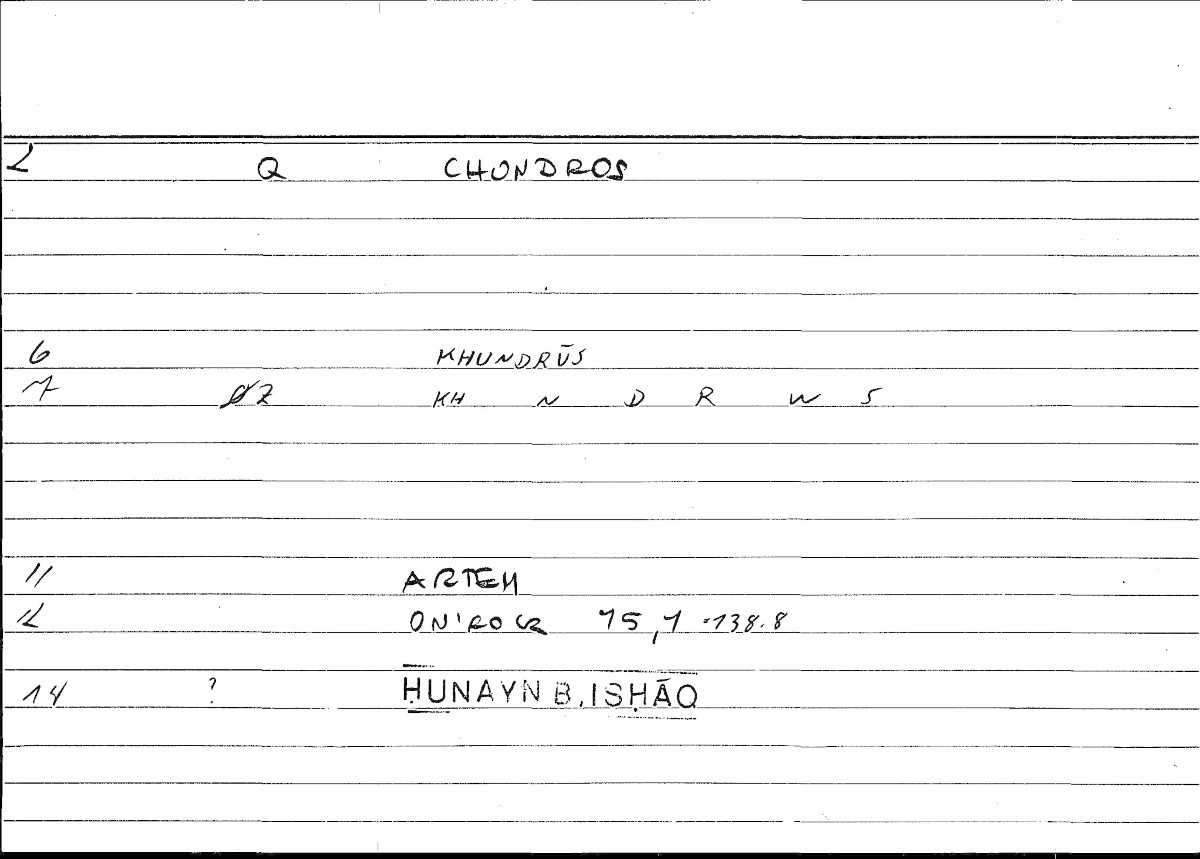 2 Q CHONDROS
6 KHUNDRŪS
7 ØZ KH N D R W S
11 ARTEM
12 ONIROCR 15,1 =138.8
14 ? ḤUNAYN B. ISḤĀQ